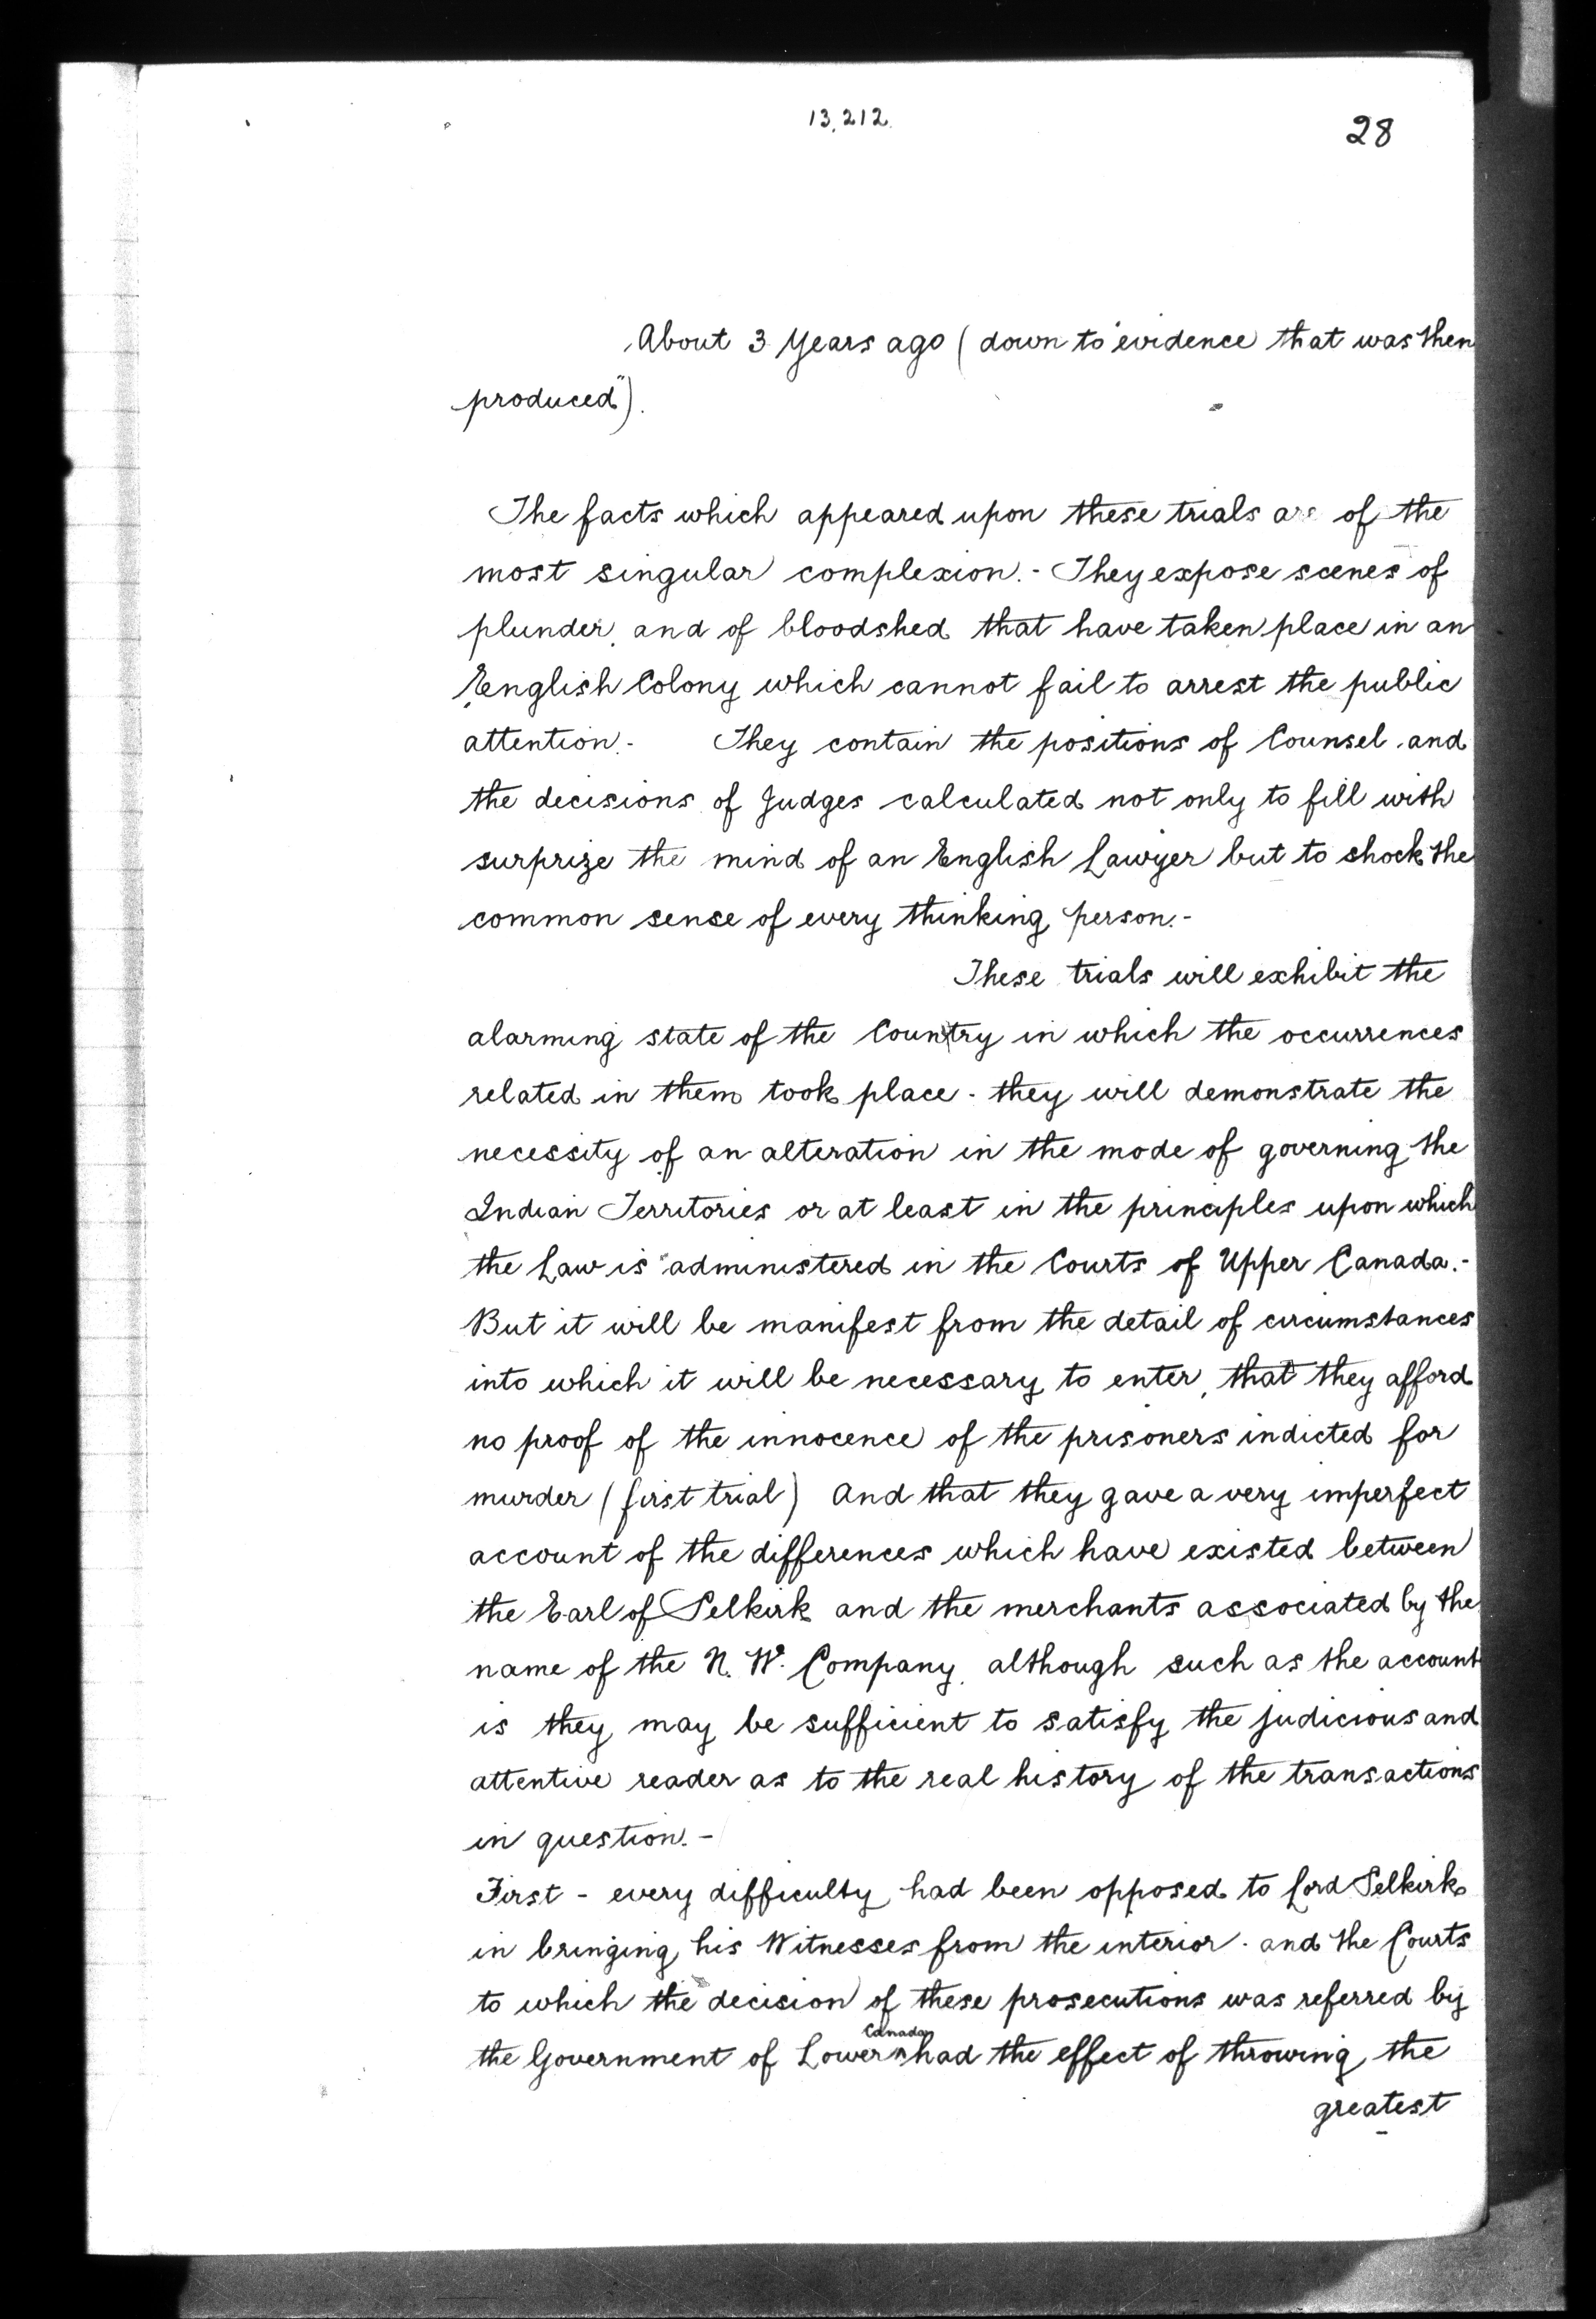 13,212
28
About 3 Years ago (down to "evidence that was then
produced").
The facts which appeared upon these trials are of the
most singular complexion. - They expose scenes of
plunder, and of bloodshed that have taken place in an
English Colony which cannot fail to arrest the public
attention. - They contain the positions of Counsel, and
the decisions of Judges calculated not only to fill with
surprize the mind of an English Lawyer but to shock the
common sense of every thinking person. -
These trials will exhibit the
alarming state of the Country in which the occurrences
related in them took place - they will demonstrate the
necessity of an alteration in the mode of governing the
Indian Territories or at least in the principles upon which
the Law is administered in the Courts of Upper Canada. -
But it will be manifest from the detail of circumstances
into which it will be necessary to enter, that they afford
no proof of the innocence of the prisoners indicted for
murder (first trial) And that they gave a very imperfect
account of the differences which have existed between
the Earl of Selkirk and the merchants associated by the
name of the N. W. Company, although such as the account
is they may be sufficient to satisfy the judicious and
attentive reader as to the real history of the transactions
in question. -
First - every difficulty had been opposed to Lord Selkirk
in bringing his Witnesses from the interior - and the Courts
to which the decision of these prosecutions was referred by
the Government of Lower Canada had the effect of throwing the
greatest